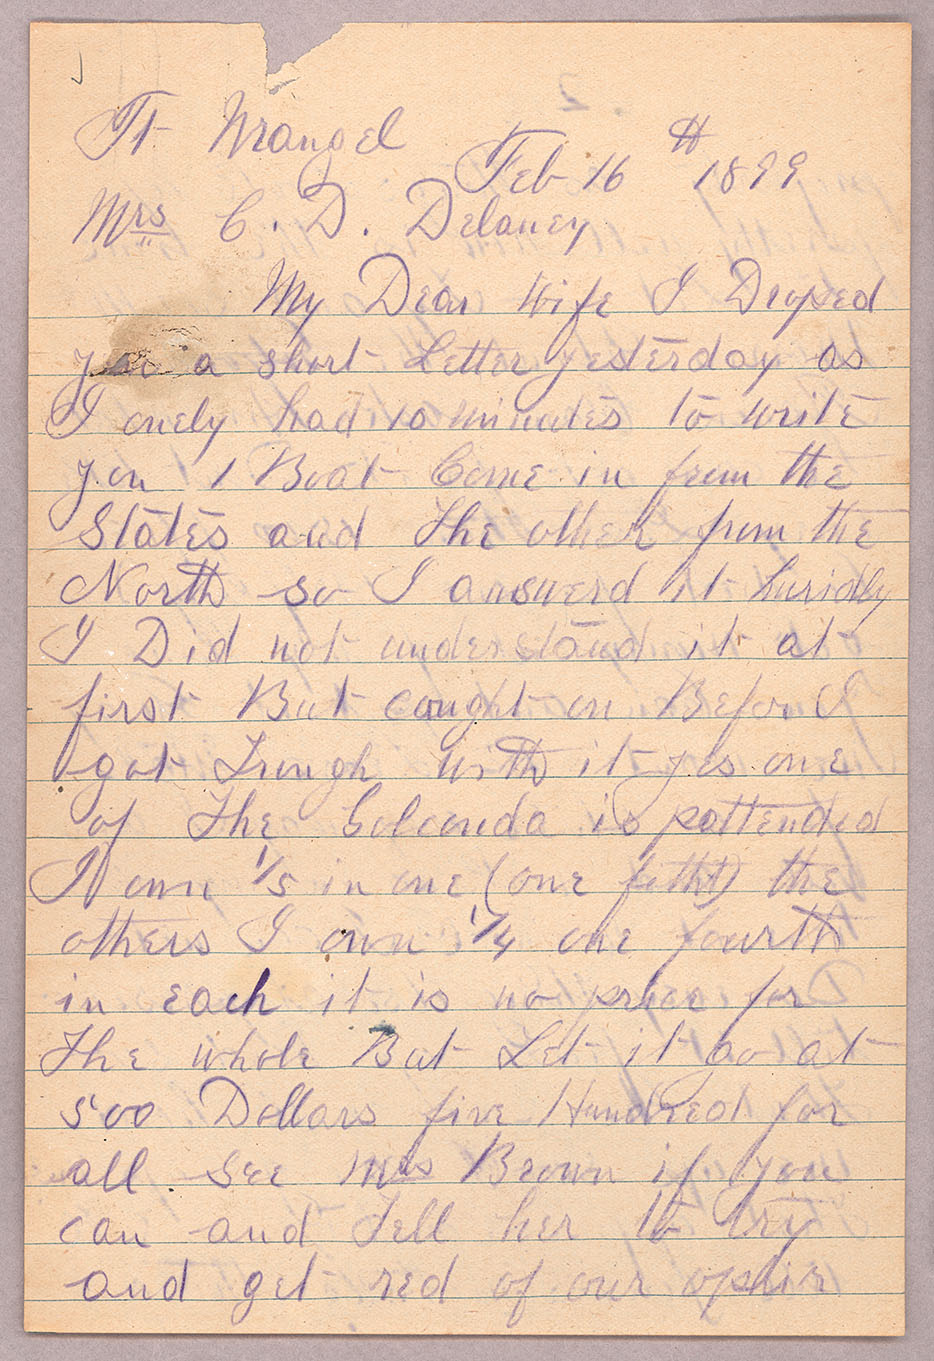 Ft Wrangel
Feb 16 th 1899
Mrs C. D. Delaney
My Dear Wife I Droped
you a short Letter yesterday as
I onely had 10 minutes to write
you 1 Boat Come in from the
States and The other from the
North so I answerd it huridly
I Did not understand it at
first But cought on Befor I
got Trough with it yes one
of The Golconda is pattended
I own 1/5 in one (one fitht) the
others I own 1/4 one fourth
in each it is no price for
The whole But Let it go at
500 Dollars five Hundred for
all. See Mrs Brown if you
can and Tell her to try
and get red of our